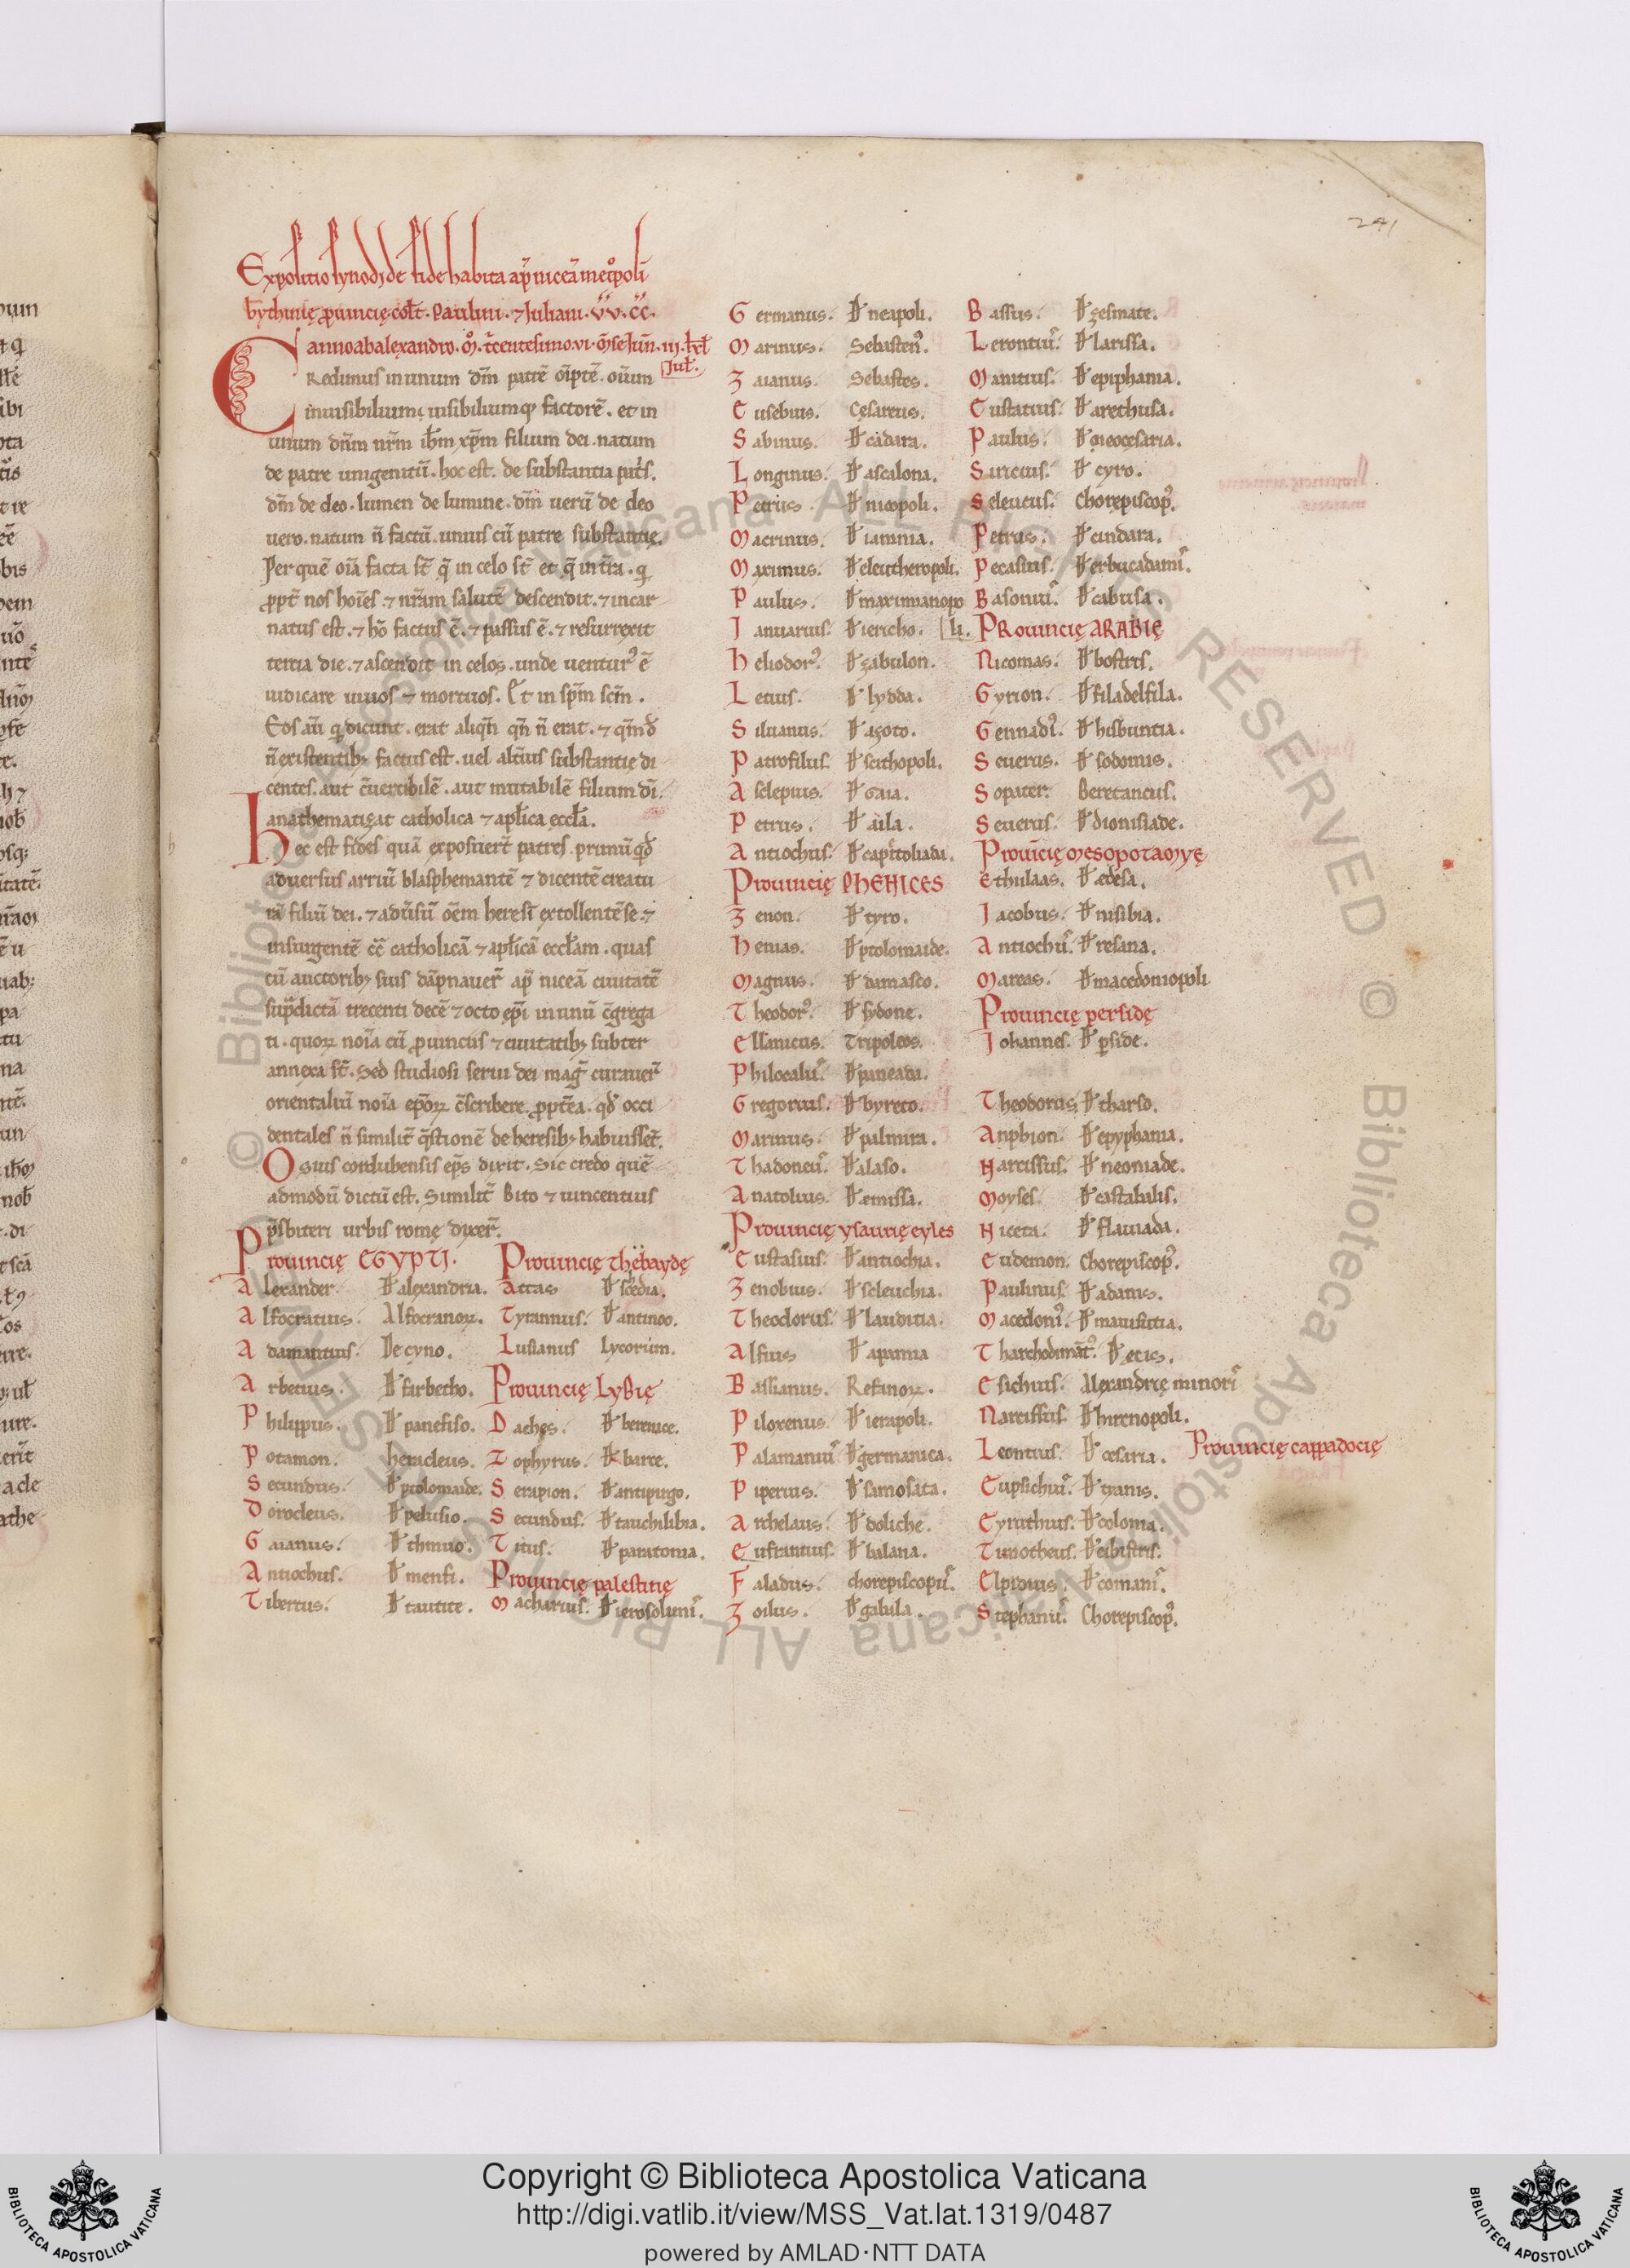 241
Expositio synodi de fide habita ap̄ niceā metͦpoli
bythinię ꝓuincię coſł. Paulini. ⁊ Juliani. v̄v. c̄c.
anno ab alexandro. m̊. tͥcentesimo. vi. m̄se Jun̄. iıj. kł
Juł.
Credimus in unum dm̄ patrē oīptē. oīum
inuisibilium, uisibiliumq; factorē. et in
unum dn̄m nr̄m ih̄m xp̄m filium dei. natum
de patre unigenitū. hoc est. de substantia pat͛s.
dm̄ de deo. lumen de lumine. dm̄ uerū de deo
uero. natum n̄ factū. unius cū patre substantię.
Per quē oīa facta st̄ q̄ in celo st̄ et q̄ in tr̄a. qͥ
ꝓpt̄ nos hoīes. ⁊ nr̄am salutē descendit. ⁊ incar
natus est. ⁊ hō factus ē. ⁊ passus ē. ⁊ resurrexit
tertia die. ⁊ ascendit in celos. unde uentur᷒ ē
iudicare uiuos ⁊ mortuos. Et in sp̄m sc̄m.
Eos aū qͥ dicunt. erat aliqn̄ qn̄ n̄ erat. ⁊ qm̄ đ
n̄ existentib; factus est. uel alt̄ius substantię di
centes. aut c̄uertibilē. aut mutabilē filium dī.
anathematizat catholica ⁊ apłica eccła.
Hec est fides quā exposuert̄ patres. primū qđ
aduersus arriū blasphemantē ⁊ dicentē creatu
rā filiū dei. ⁊ adūsū oēm heresī extollentē se. ⁊
insurgentē c̄ catholicā ⁊ apłicā ecctam. quas
cū auctorib; suis dāpnauer̄ ap̄ niceā ciuitatē
sup̄dictā trecenti decē ⁊ octo ep̄i in unū c̄grega
ti. quoꝝ noīa cū ꝓuinciis ⁊ ciuitatib; subter
annexa st̄. Sed studiosi serui dei mag̃ curauer̄
orientaliū noīa ep̄oꝝ c̄scribere. ꝓpt̄ea. qđ occi
dentales n̄ similit̄ q̄stionē de heresib; habuisset̄.
Osius cordubensis ep̄s dixit. Sic credo quē
admodū dictū est. Similit̄ Bito ⁊ uincentius
p̄sbiteri urbis romę dixer̄.
Prouincię EGYPTI.
Alexander. Đ alexandria.
Alfocratius. Alfocranoꝝ.
Adamantius. De cyno.
Arbetius. Đ farbetho.
Philippus. Đ panefiso.
Potamon. heracleus.
Secundus. Đ ptolomaide.
Dorocleus. Đ pelusio.
Gaianus. Đ thmuo.
Antiochus. Đ menfi.
Tibertus. Đ tautite.
Prouincię thebaydę
Attas Đ scedia.
Tyrannus. Đ antinoo.
Lusianus Lycorum.
Prouincię Lybię
Daches. Đ berenice.
Zophyrus. Đ barce.
Serapion. Đ antipirgo.
Secundus. Đ tauchilibia.
Titus. Đ paratonia.
Prouincię palestinę
Macharius. Đ ierosolimī.
Germanus. Đ neapoli.
Marinus. Sebasten᷒.
Zaianus. Sebastes.
Eusebius. Cesareus.
Sabinus. Đ cadara.
Longinus. Đ ascalona.
Petrus. Đ nicopoli.
Macrinus. Đ iamnia.
Maximus. Đ eleutheropoli.
Paulus. Đ maximianopo
li.
Ianuarius. Đ iericho.
Heliodor᷒. Đ zabulon.
Letius. Đ lydda.
Siluanus. Đ azoto.
Patrofilus. Đ scithopoli.
Asclepius. Đ Gaza.
Petrus. Đ aila.
Antiochus. Đ capitoliada.
Prouincię PHENICES
Zenon. Đ tyro.
Henias. Đ ptolomaide.
Magnus. Đ damasco.
Theodor᷒. Đ sydone.
Ellanicus. Tripoleos.
Philocalu᷒. Đ paneada.
Gregorius. Đ byreto.
Marinus. Đ palmira.
Thadoneu᷒. Đ alaso.
Anatolius. Đ emissa.
Prouincię ysaurię cyles
Eustasius. Đ antiochia.
Zenobius. Đ seleuchia.
Theodorus. Đ lauditia.
Alfius Đ apamia
Bassianus. Refanoꝝ.
Piloxenus. Đ ierapoli.
Palamaniu᷒ Đ germanica.
Piperius. Đ samosata.
Archelaus. Đ doliche.
Eufrantius. Đ balana.
Faladus. chorepiscopu᷒.
Zoilus. Đ gabula.
Bassus. Đ zesmate.
Lerontiu᷒. Đ larissa.
Manitius. Đ epiphania.
Eustatius. Đ arethusa.
Paulus. Đ neocesaria.
Siricius. Đ cyro.
Seleucus. Chorepiscop᷒.
Petrus. Đ cindara.
Pecasius. Đ erbucadami᷒.
Basoniu᷒. Đ cabusa.
PRouincię ARABIĘ
Nicomas. Đ bostris.
Gyrion. Đ filadelfila.
Gennadi᷒. Đ hisbuntia.
Seuerus. Đ sodomis.
Sopater. Beretaneus.
Seuerus. Đ dionisiade.
Prouīcię MESOPOTAMYĘ
Ethilaas. Đ edesa.
Jacobus. Đ nisibia.
Antiochu᷒. Đ resana.
Mareas. Đ macedoniopoli
Prouincię persidę
Johannes. Đ pside.
Theodorus Đ tharso.
Anphion. Đ epyphania.
Narcissus. Đ neoniade.
Moyses. Đ castabalis.
Niceta. Đ flauiada.
Eudemon. Chorepiscop᷒.
Paulinus. Đ adanis.
Macedoni᷒. Đ mausistia.
Tharchodimāt᷒. Đ egis.
Esichius. Alexandrię minori᷒
Narcissus. Đ hirenopoli.
Prouincię cappadocię
Leontius. Đ cesaria.
Eupsichiu᷒. Đ tyanis.
Eyruthius. Đ colonia.
Timotheus. Đ cibistris.
Elpidius. Đ comani᷒.
Stephanu᷒. Chorepiscop᷒.
Copyright © Biblioteca Apostolica Vaticana
http://digi.vatlib.it/view/MSS_Vat.lat.1319/0487
powered by AMLAD·NTT DATA
BIBLIOTECA APOSTOLICA VATICANA
BIBLIOTECA APOSTOLICA VATICANA